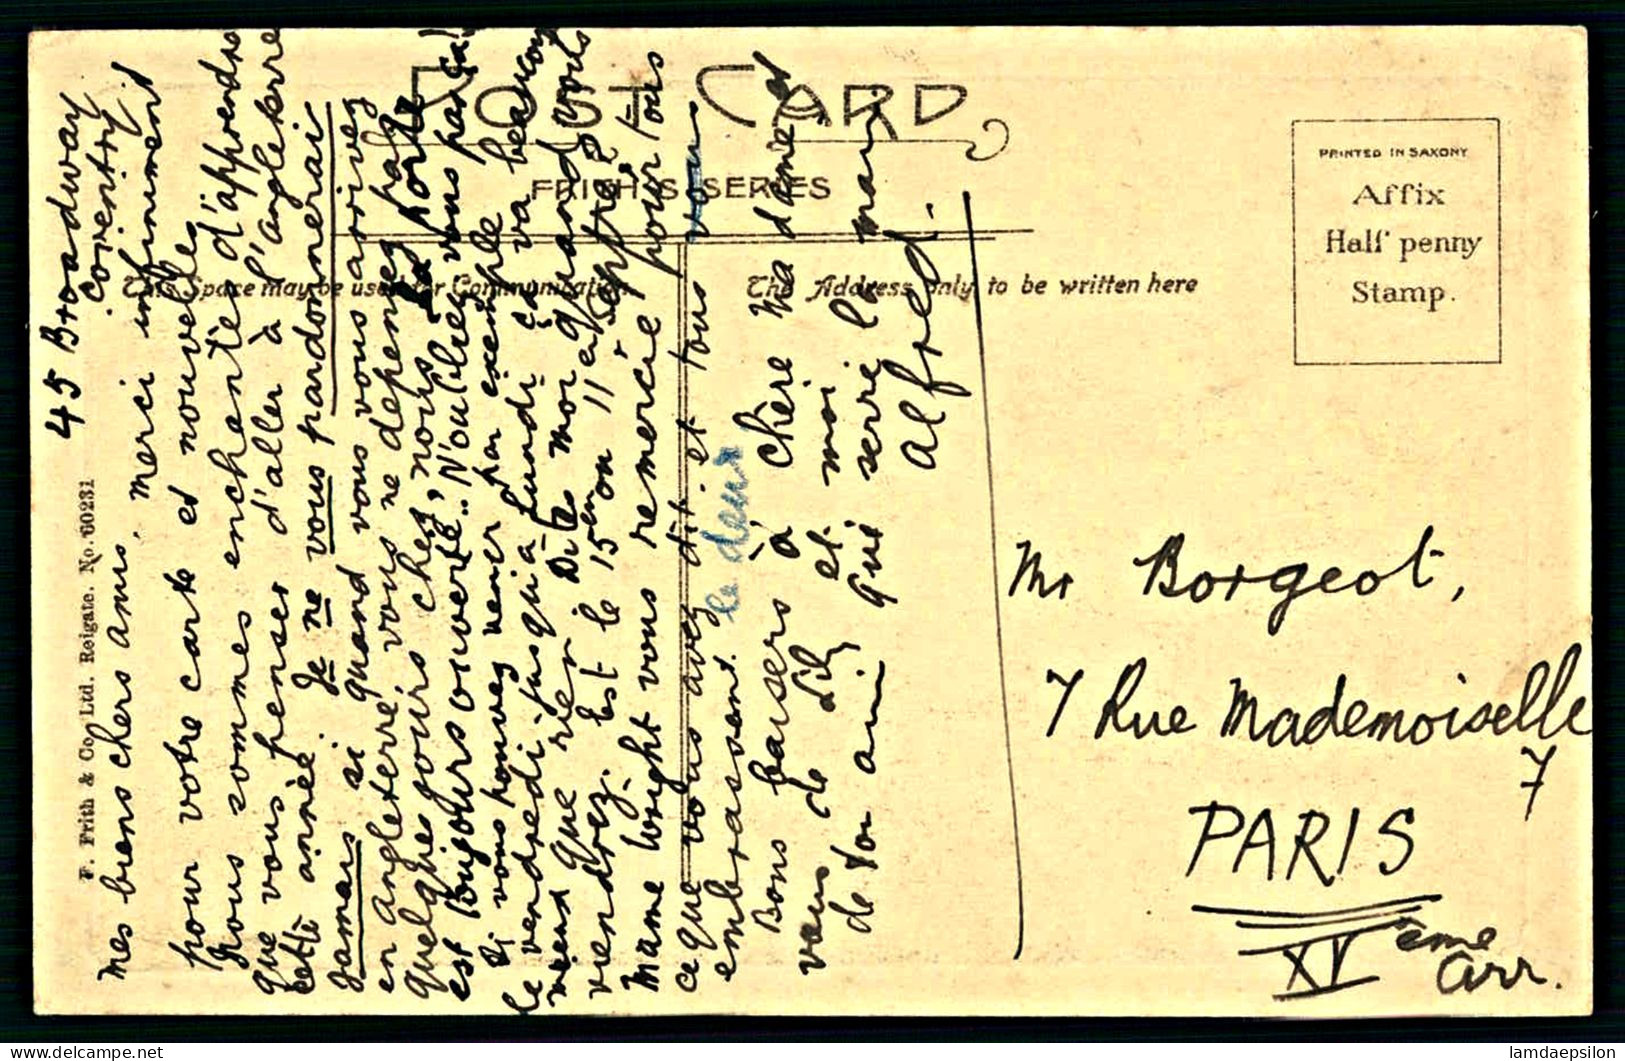 45 Broadway
Coventry
Mes biens chers amis. Merci infiniment
pour votre carte et nouvelles
Nous sommes enchantés d'apprendre
que vous penser d'aller à l'angleterre
cette année. Je ne vous pardonnerai
Jamais si quand vous vous arrivez
en angleterre vous ne depenez pas
quelques jours chez nous. La porte
est Toujours ouverte. N'oubliez vous pas ça!
Si vous pouvez venez par exemple
le vendredi jusqu'a Lundi ça va beaucoup
mieux que rien. Dites moi quand vous
viendrez. Est le 15 en ou 11 en Septre?
Mame Wright vous remercie pour tous
ce que vous avez dit. et tous vous
embrassent. le deux
Bons baisers à chère Madame et
vous de Lily et moi
de ton ami qui serre la main
Alfred.
POST CARD
FRITH'S SERIES
This Space may be used for Communication
The Address only to be written here
PRINTED IN SAXONY
Affix
Half penny
Stamp.
Mr Borgeot,
7 Rue Mademoiselle
7
PARIS
XV eme
Arr.
F. Frith & Co. Ltd. Reigate. No. 60231
lamdaepsilon